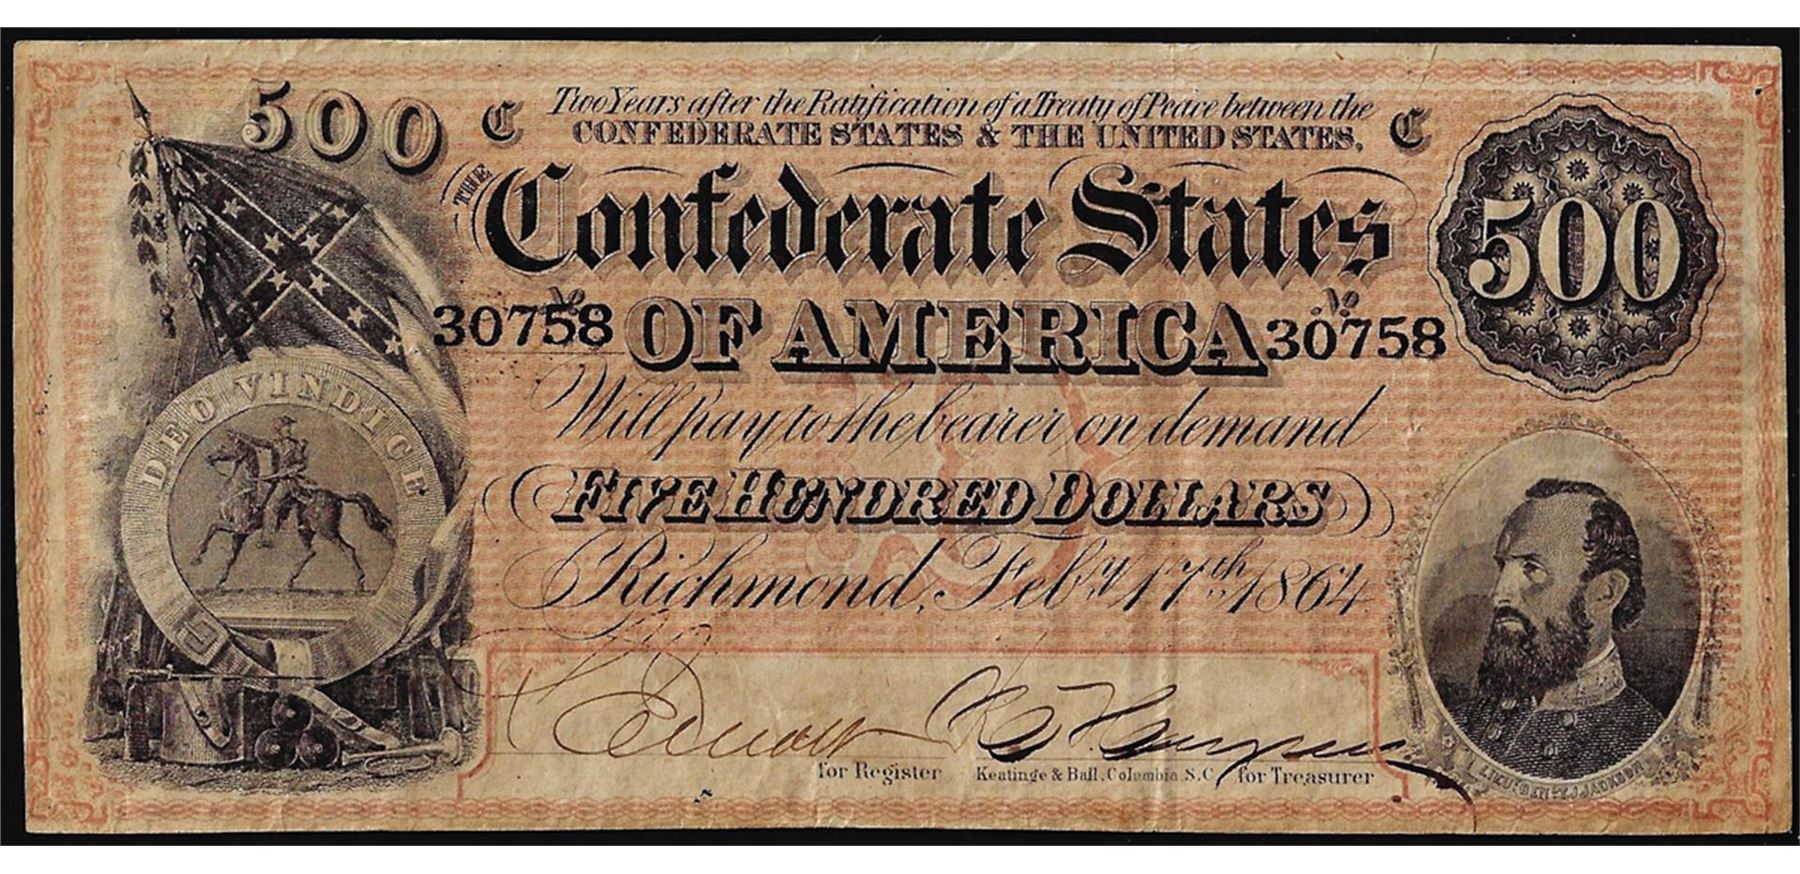 500
C Two Years after the Ratification of a Treaty of Peace between the C
CONFEDERATE STATES & THE UNITED STATES,
THE Confederate States
500
No 30758 OF AMERICA No 30758
Will pay to the bearer on demand
FIVE HUNDRED DOLLARS
Richmond, Feby 17th 1864.
DEO VINDICE
for Register
Keatinge & Ball, Columbia, S.C.
for Treasurer
LIEUT GEN T. J. JACKSON